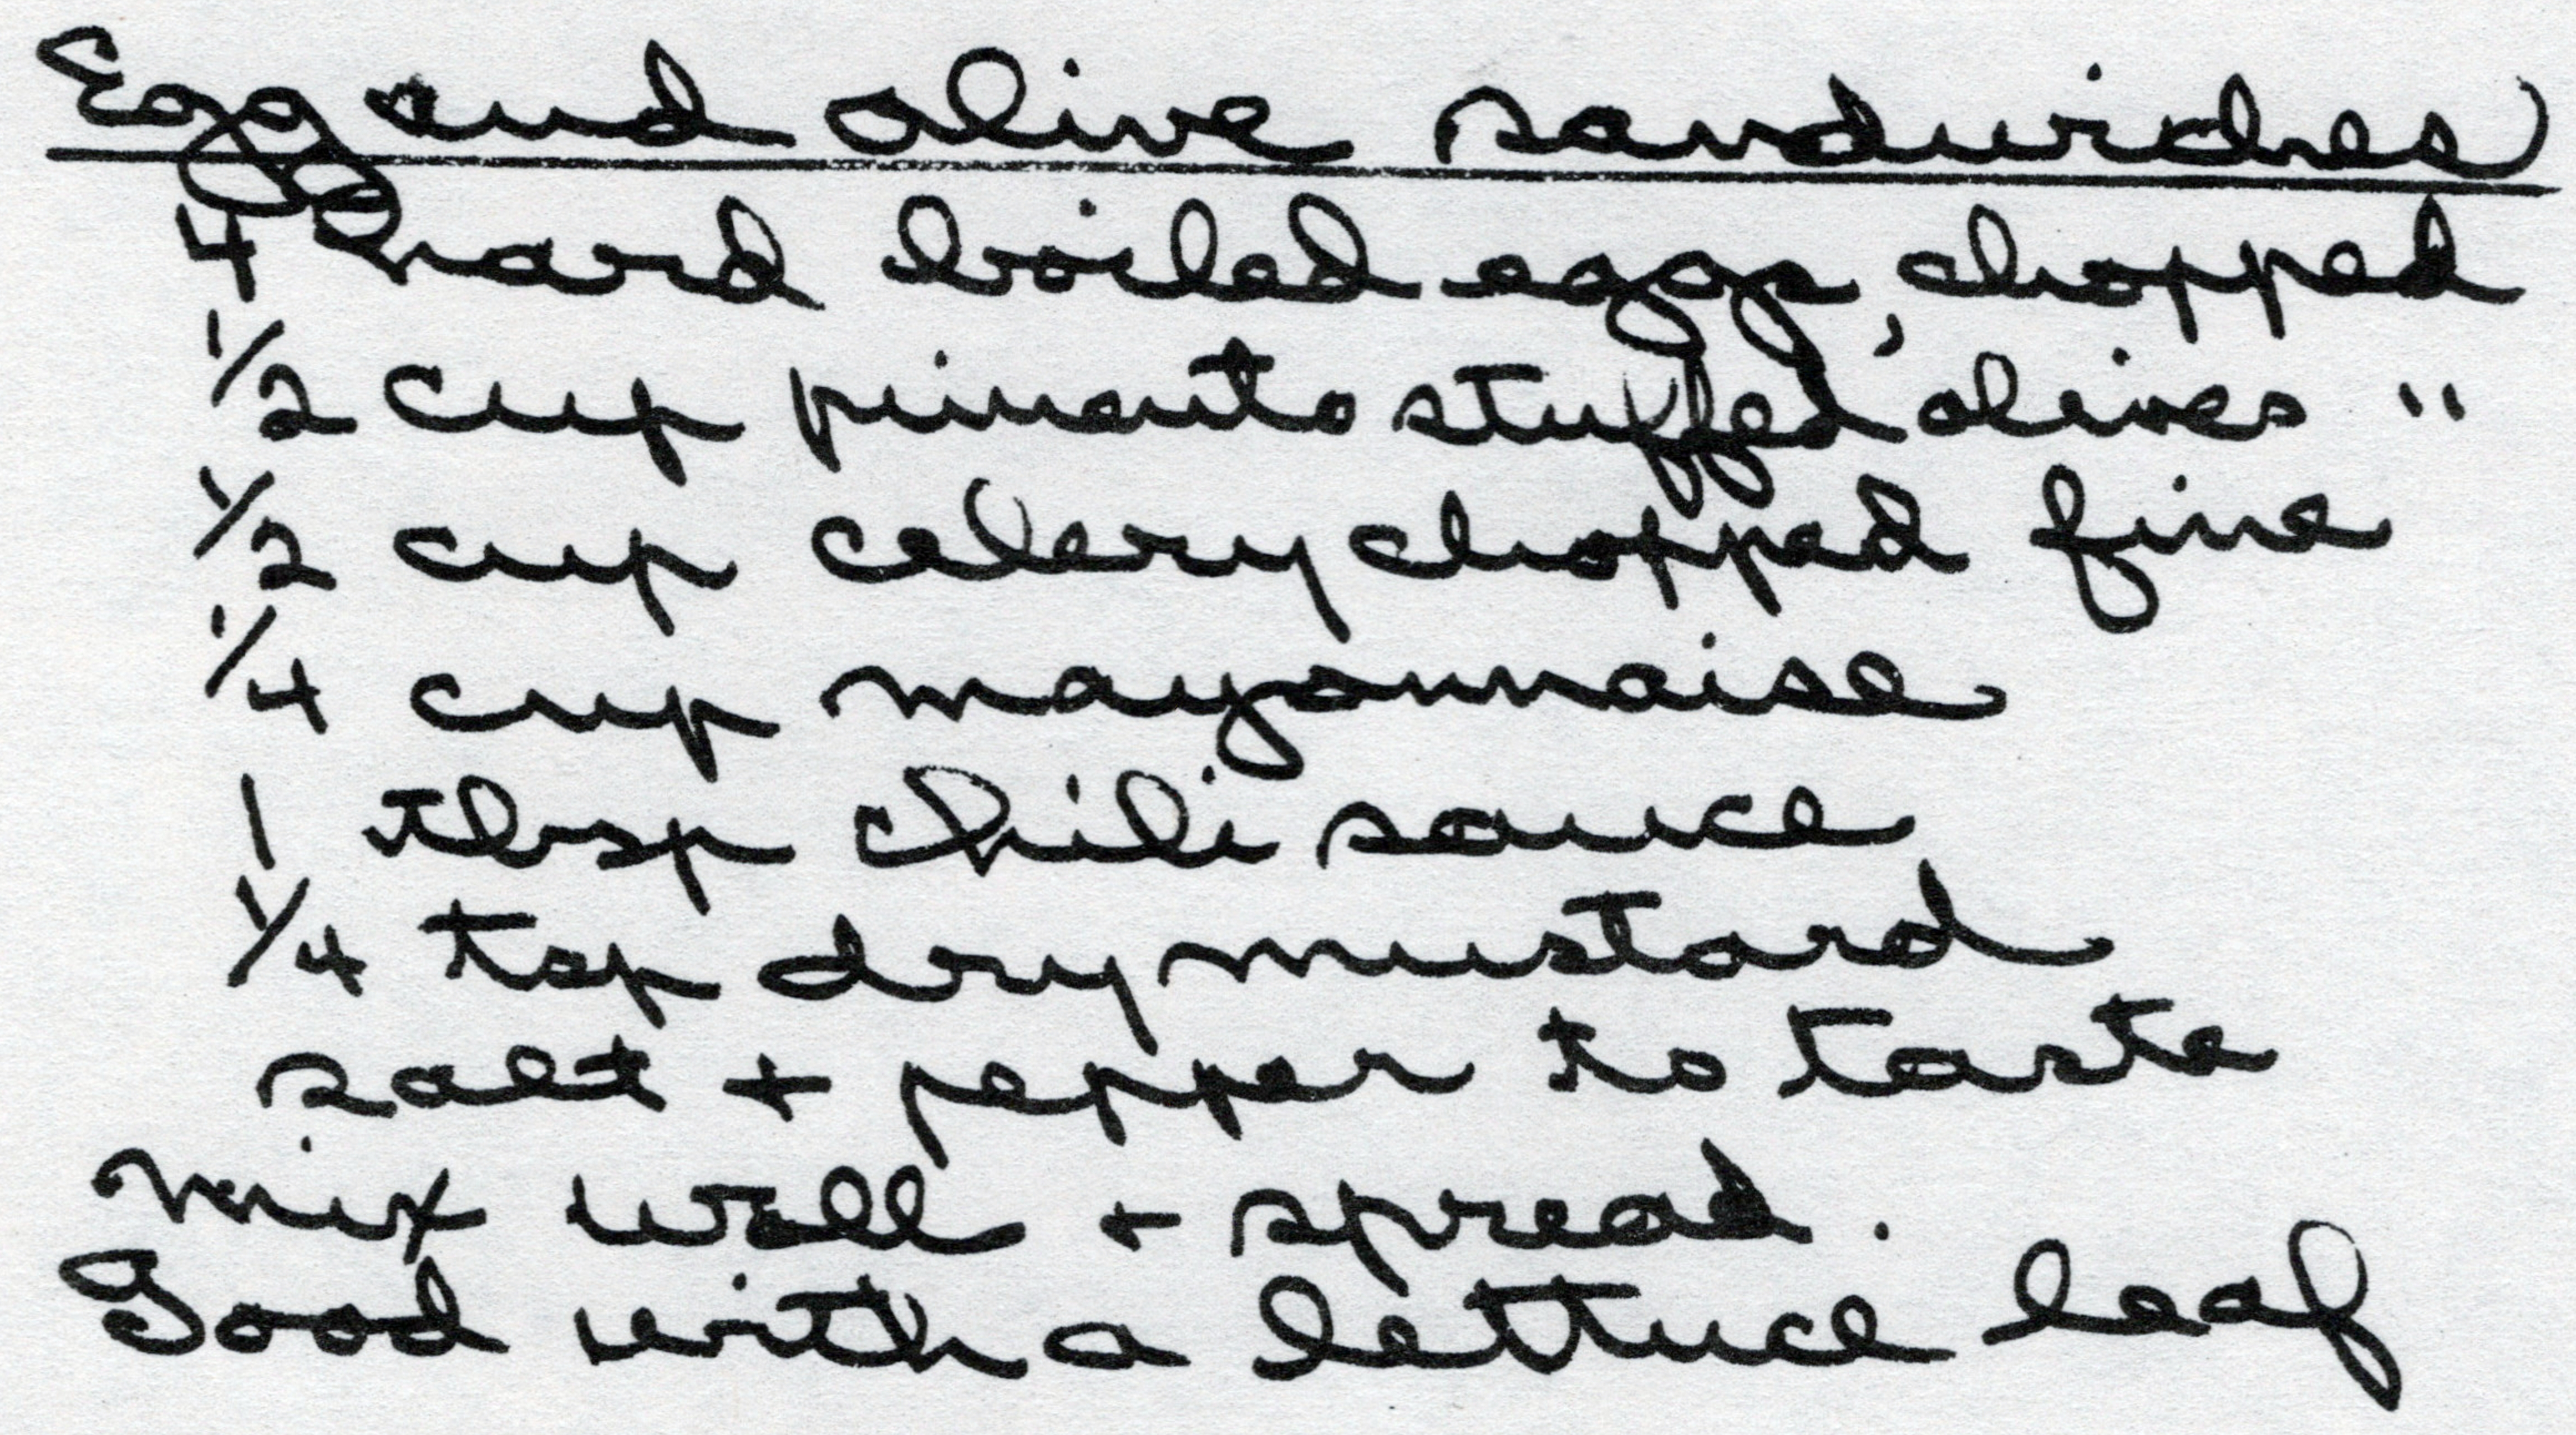 Egg and olive sandwiches
4 hard boiled eggs, chopped
1/2 cup pimento stuffed olives "
1/2 cup celery chopped fine
1/4 cup mayonnaise
1 tbsp chili sauce
1/4 tsp dry mustard
salt + pepper to taste
mix well + spread.
Good with a lettuce leaf